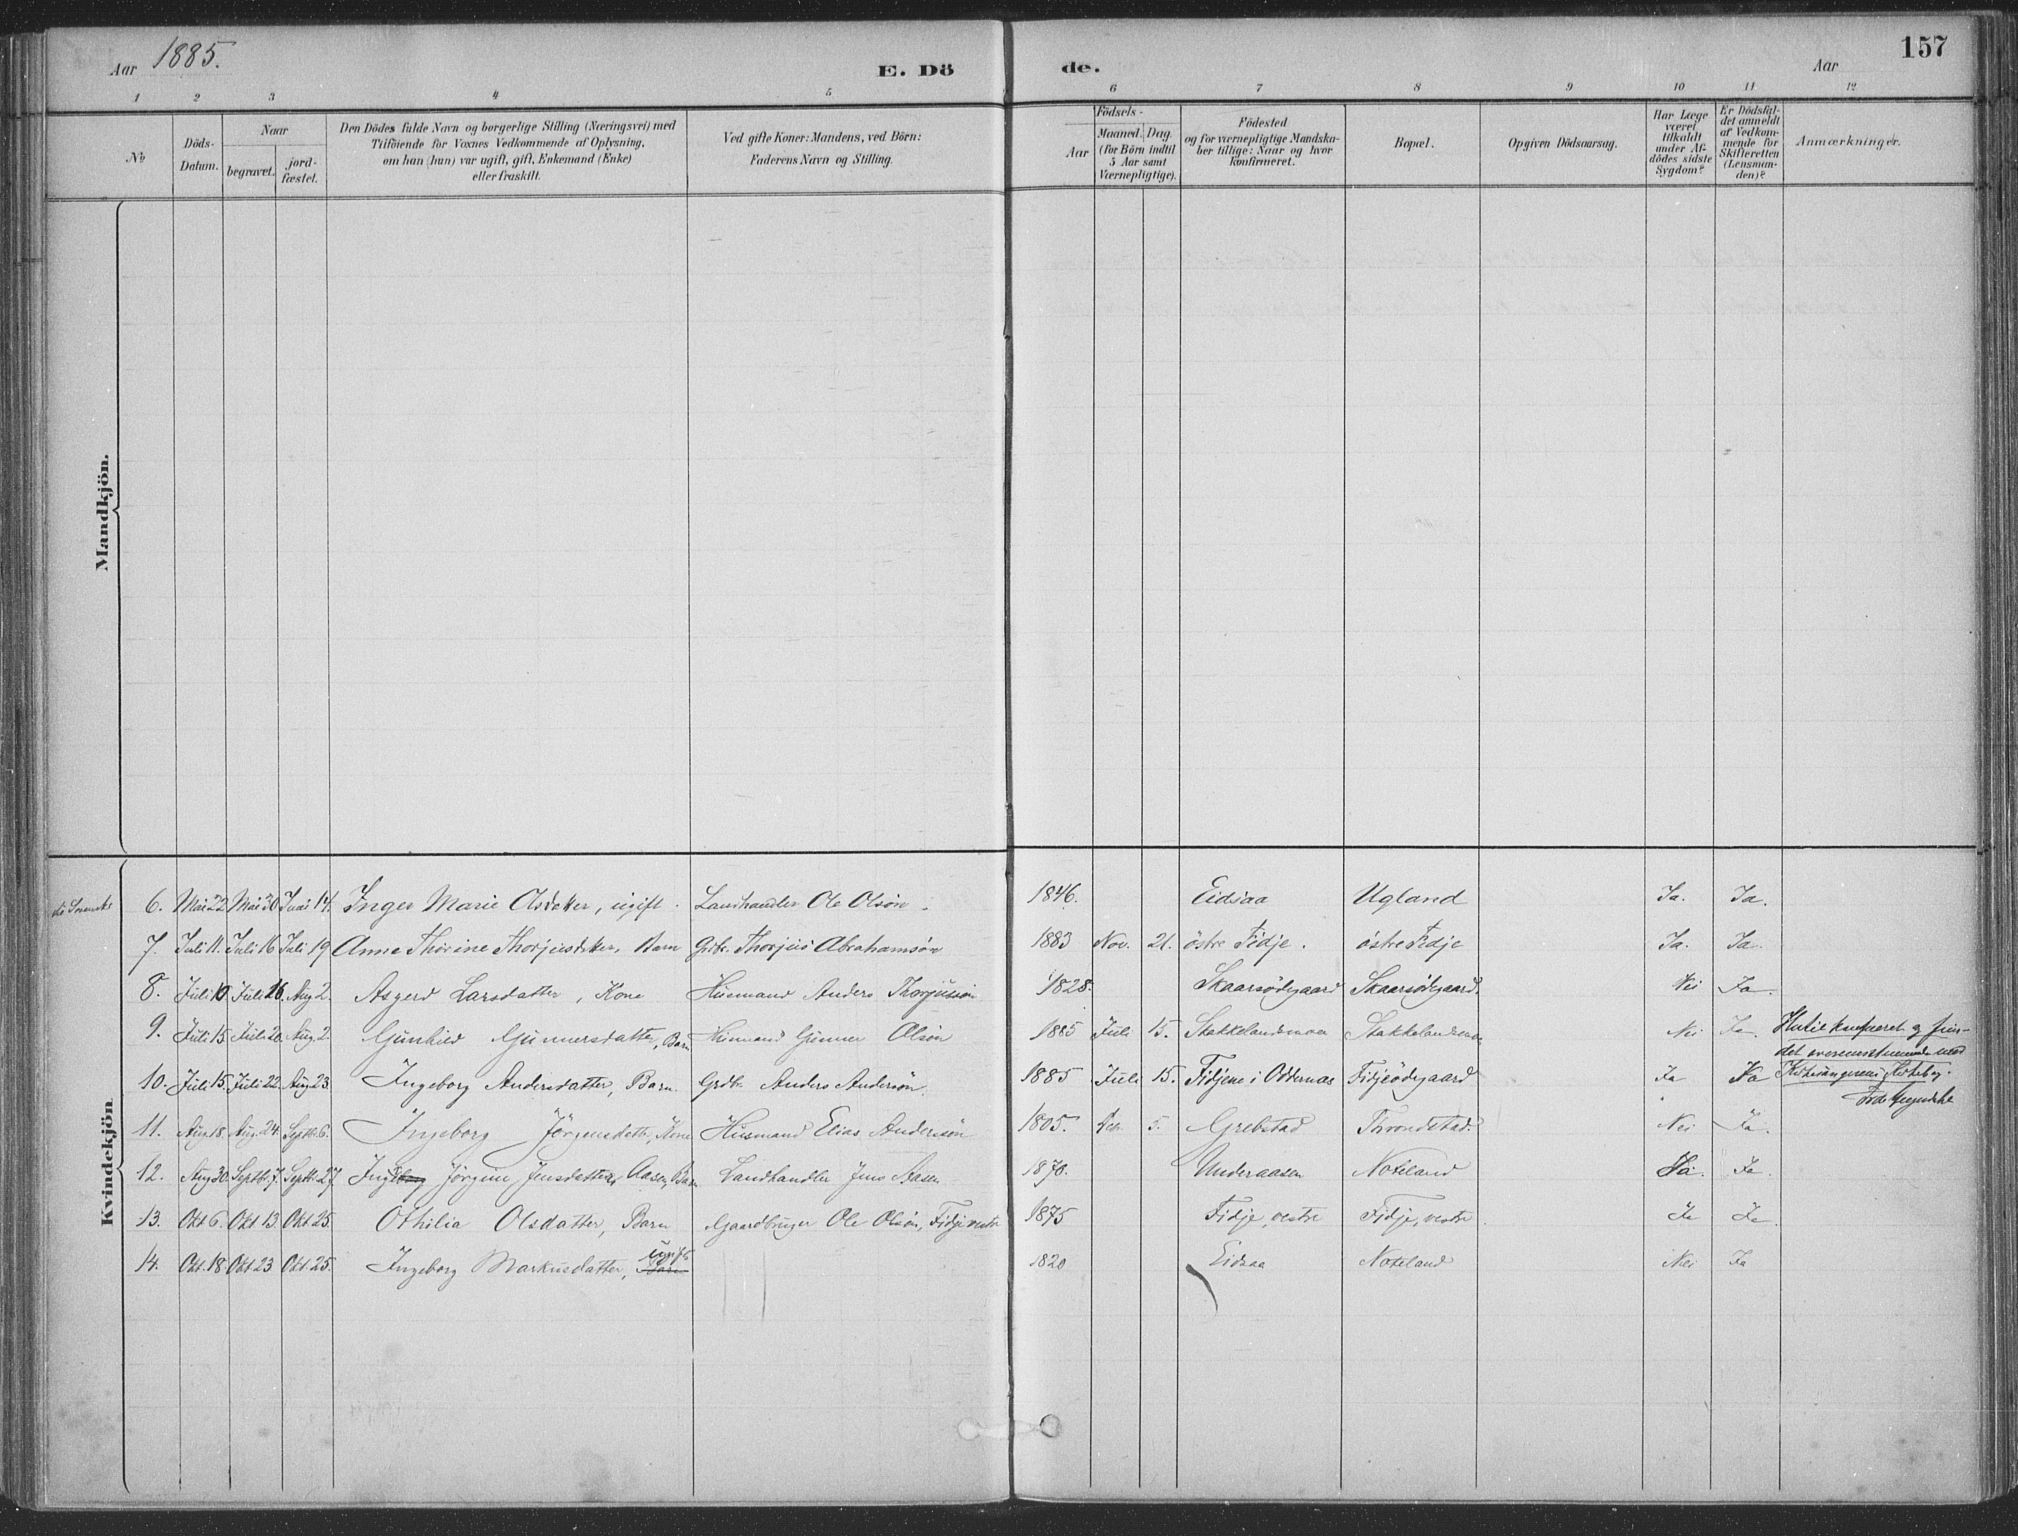 Aar 1885.
E. Dö
de.
Aar
157
1 2 3 4 5 6 7 8 9 10 11 12
No
Döds-
Datum.
Naar
begravet.
jord-
fæstet.
Den Dödes fulde Navn og borgerlige Stilling (Næringsvei) med
Tilföiende for Voxnes Vedkommende af Oplysning,
om han (hun) var ugift, gift, Enkemand (Enke)
eller fraskilt.
Ved gifte Koner: Mandens, ved Börn:
Faderens Navn og Stilling.
Födsels-
Aar
Maaned.
Dag.
(for Börn indtil
5 Aar samt
Værnepligtige).
Födested
og for værnepligtige Mandska-
ber tillige: Naar og hvor
konfirmeret.
Bopæl.
Opgiven Dödsaarsag.
Har Læge
været
tilkaldt
under Af-
dödes sidste
Sygdom?
Er Dödsfal-
det anmeldt
af Vedkom-
mende for
Skifteretten
(Lensman-
den)?
Anmærkninger.
Mandkjön.
Kvindekjön.
6. Mai 22 Mai 30 Juni 14. Inger Marie Olsdatter, ugift. Landhandler Ole Olsön. 1846. Eidsaa Ugland Ja. Ja.
7. Juli 11. Juli 16 Juli 19 Anne Thorine Thorjusdtter, Barn Grdbr. Thorjus Abrahamsön 1883 Nov. 21. östre Fidje. östre Fidje Ja. Ja.
8. Juli 10 Juli 26 Aug 2. Asgerd Larsdatter, Kone Husmand Anders Thorjussön 1828. Skaarsödegaard Skaarsödegaard. Nei Ja.
9. Juli 15 Juli 20 Aug. 2. Gunhild Gunnersdatter, Barn Husmand Gunner Olsön 1885 Juli 15. Stakkelandsmoen Nei Ja.
10. Juli 15. Juli 22. Aug 23. Ingeborg Andersdatter, Barn Grdbr. Anders Andersön. 1885 Juli 15. Fidjene i Oddernæs Fidjeödegaard Ja
11. Aug 18. Aug. 24. Septb. 6. Ingeborg Jörgensdatter, Kone Husmand Elias Andersön 1805. 5. Grebstad Throndstad. Nei Ja.
12. Aug 30 Septb. 7. Septb. 27. Jörgine Jensdatter Aasen, Barn Landhandler Jens Aasen 1870. Underaasen Noteland Ja.
13. Okt 6. Okt 13. Okt 25. Othilia Olsdatter, Barn Gaardbruger Ole Olsön, Fidje vestre 1875 Fidje, vestre Fidje, vestre Ja Ja.
14. Okt. 18. Okt 23 Okt. 25. Ingeborg Markusdatter, Barn ugift 1820 Eidsaa Noteland Nei Ja
det overensstemmende med